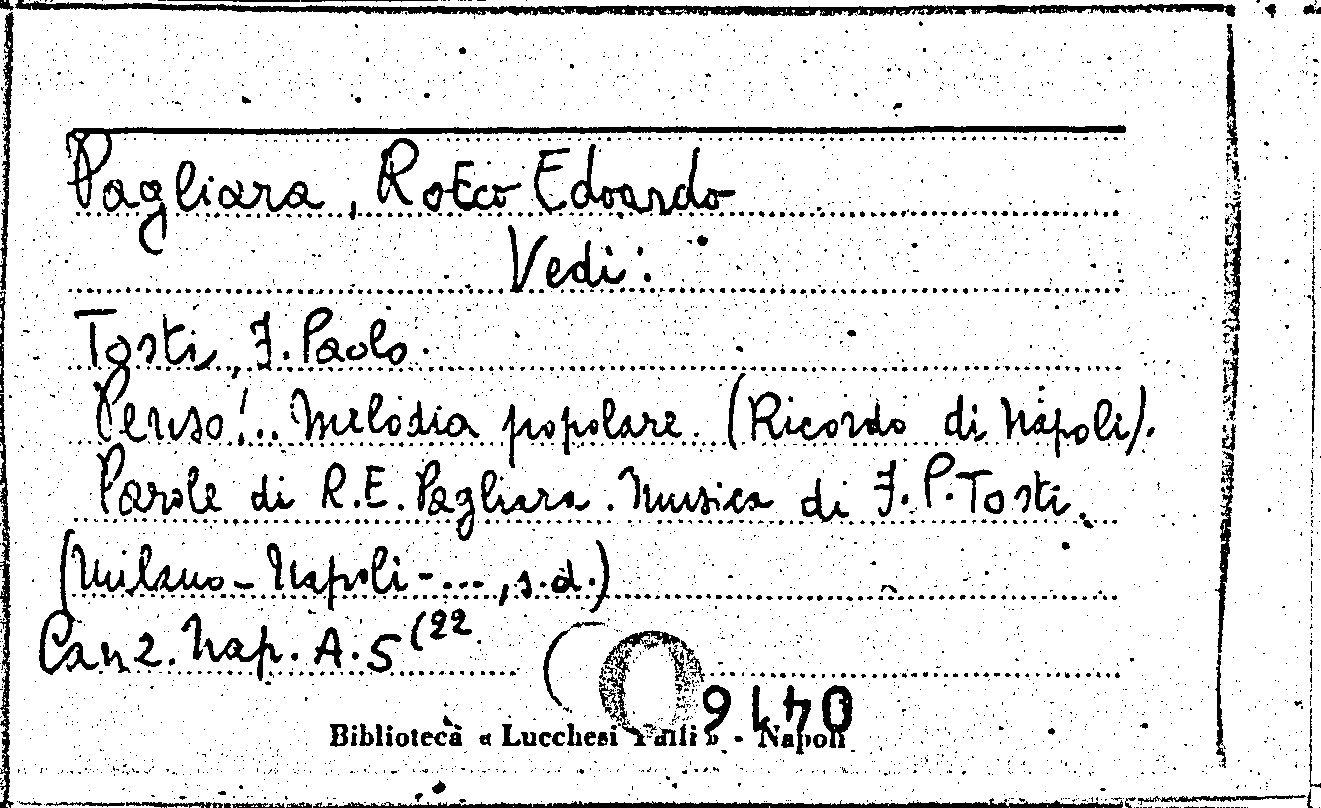 Pagliara, Rocco Edoardo
Vedi:
Tosti, F. Paolo.
Penso!.. Melodia popolare. (Ricordo di Napoli).
Parole di R.E. Pagliara. Musica di F. P. Tosti.
(Milano-Napoli-..., s.d.)
Canz. Nap. A.5 (22
Biblioteca « Lucchesi Palli » - Napoli